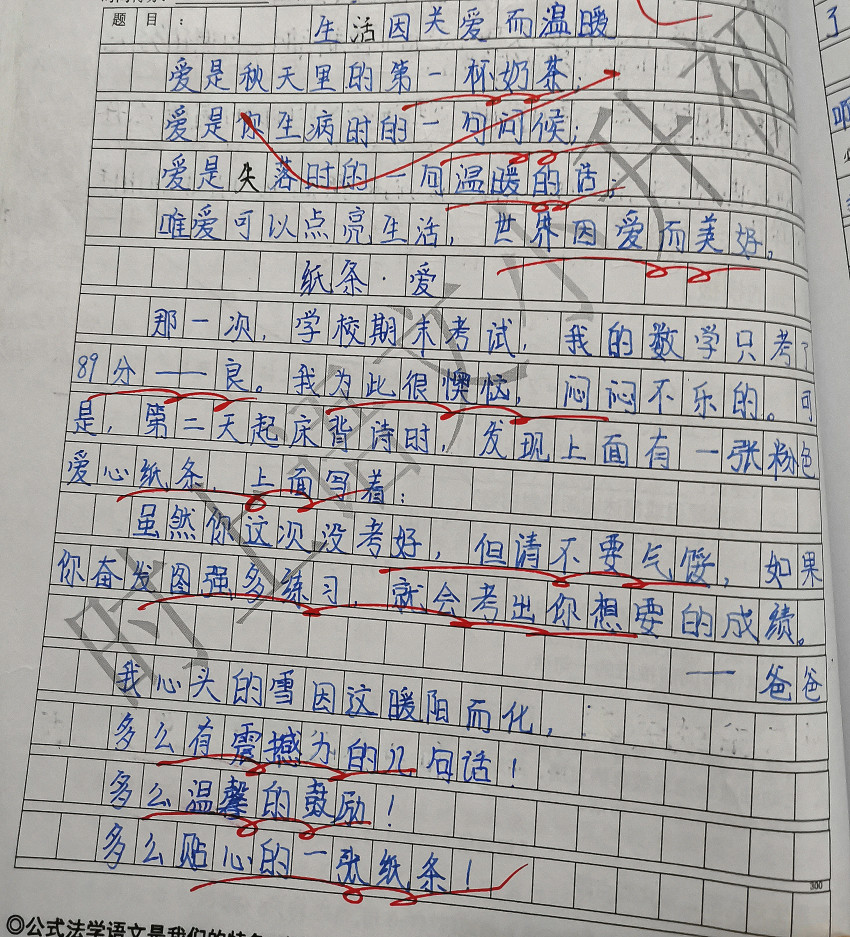 题目：
生活因关爱而温暖
爱是秋天里的第一杯奶茶；
爱是你生病时的一句问候；
爱是失落时的一句温暖的话；
唯爱可以点亮生活，世界因爱而美好。
纸条·爱
那一次，学校期末考试，我的数学只考了
89分——良。我为此很懊恼，闷闷不乐的。可
是，第二天起床背诗时，发现上面有一张粉色
爱心纸条，上面写着：
虽然你这次没考好，但请不要气馁，如果
你奋发图强多练习，就会考出你想要的成绩。
——爸爸
我心头的雪因这暖阳而化，
多么有震撼力的几句话！
多么温馨的鼓励！
多么贴心的一张纸条！
300
◎公式法学语文是我们的特
时上语文小升初